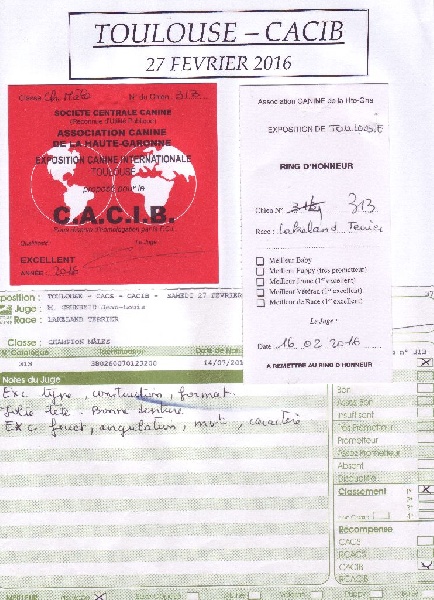 TOULOUSE – CACIB
27 FEVRIER 2016
Classe Ch. Mâle N° du Chien 313
SOCIETE CENTRALE CANINE
(Reconnue d'Utilité Publique)
ASSOCIATION CANINE
DE LA HAUTE-GARONNE
EXPOSITION CANINE INTERNATIONALE
TOULOUSE
proposé pour le
C.A.C.I.B.
(sous réserve d'homologation par la F.C.I.)
Qualificatif Le Juge
EXCELLENT
ANNÉE : 2016
Association CANINE de la Hte-Gne
EXPOSITION DE TOULOUSE
RING D'HONNEUR
Chien N° 313
Race : Lakeland Terrier
Meilleur Baby
Meilleur Puppy (très prometteur)
Meilleur Jeune (1er excellent)
Meilleur Vétéran (1er excellent)
Meilleur de Race (1er excellent)
Le Juge :
Date 16 02 2016
A REMETTRE AU RING D'HONNEUR
position : TOULOUSE - CACS - CACIB - SAMEDI 27 FEVRIER
Juge : M. Jean-Louis
Race : LAKELAND TERRIER
Classe : CHAMPION MÂLES
N° Catalogue Identification Date de
313 380260070123200 14/07/
n° 313
Notes du Juge
Exc type, construction, format.
Jolie tête. Bonne denture.
Exc fouet, angulation, mvt, caractère
Bon
Assez Bon
Insuffisant
Très Prometteur
Prometteur
Assez Prometteur
Absent
Disqualifié
Classement
Récompense
CACS
RCACS
CACIB
RCACIB